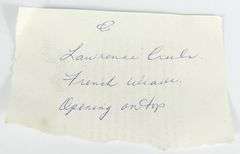 C
Lawrence
French Weave.
Opening on top